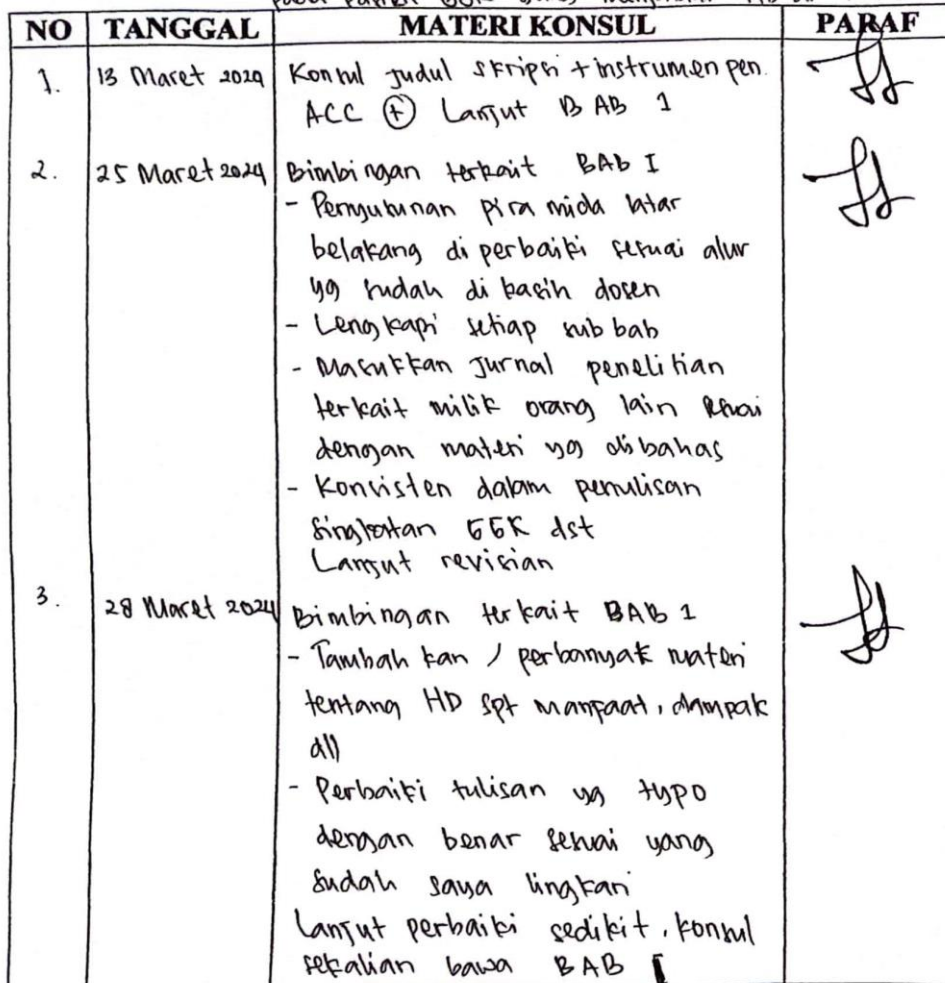 pada pasien GGK yang menjalani HD
NO TANGGAL MATERI KONSUL PARAF
1. 13 Maret 2024 Konsul judul skripsi + instrumen pen.
ACC + Lanjut BAB 1
2. 25 Maret 2024 Bimbingan terkait BAB I
- Penyusunan piramida latar
belakang di perbaiki sesuai alur
yg sudah di kasih dosen
- Lengkapi setiap sub bab
- Masukkan Jurnal penelitian
terkait milik orang lain sesuai
dengan materi yg dibahas
- Konsisten dalam penulisan
singkatan GGK dst
Lanjut revisian
3. 28 Maret 2024 Bimbingan terkait BAB 1
- Tambah kan / perbanyak materi
tentang HD spt manfaat, dampak
dll
- Perbaiki tulisan yg typo
dengan benar sesuai yang
sudah saya lingkari
Lanjut perbaiki sedikit, konsul
sekalian bawa BAB